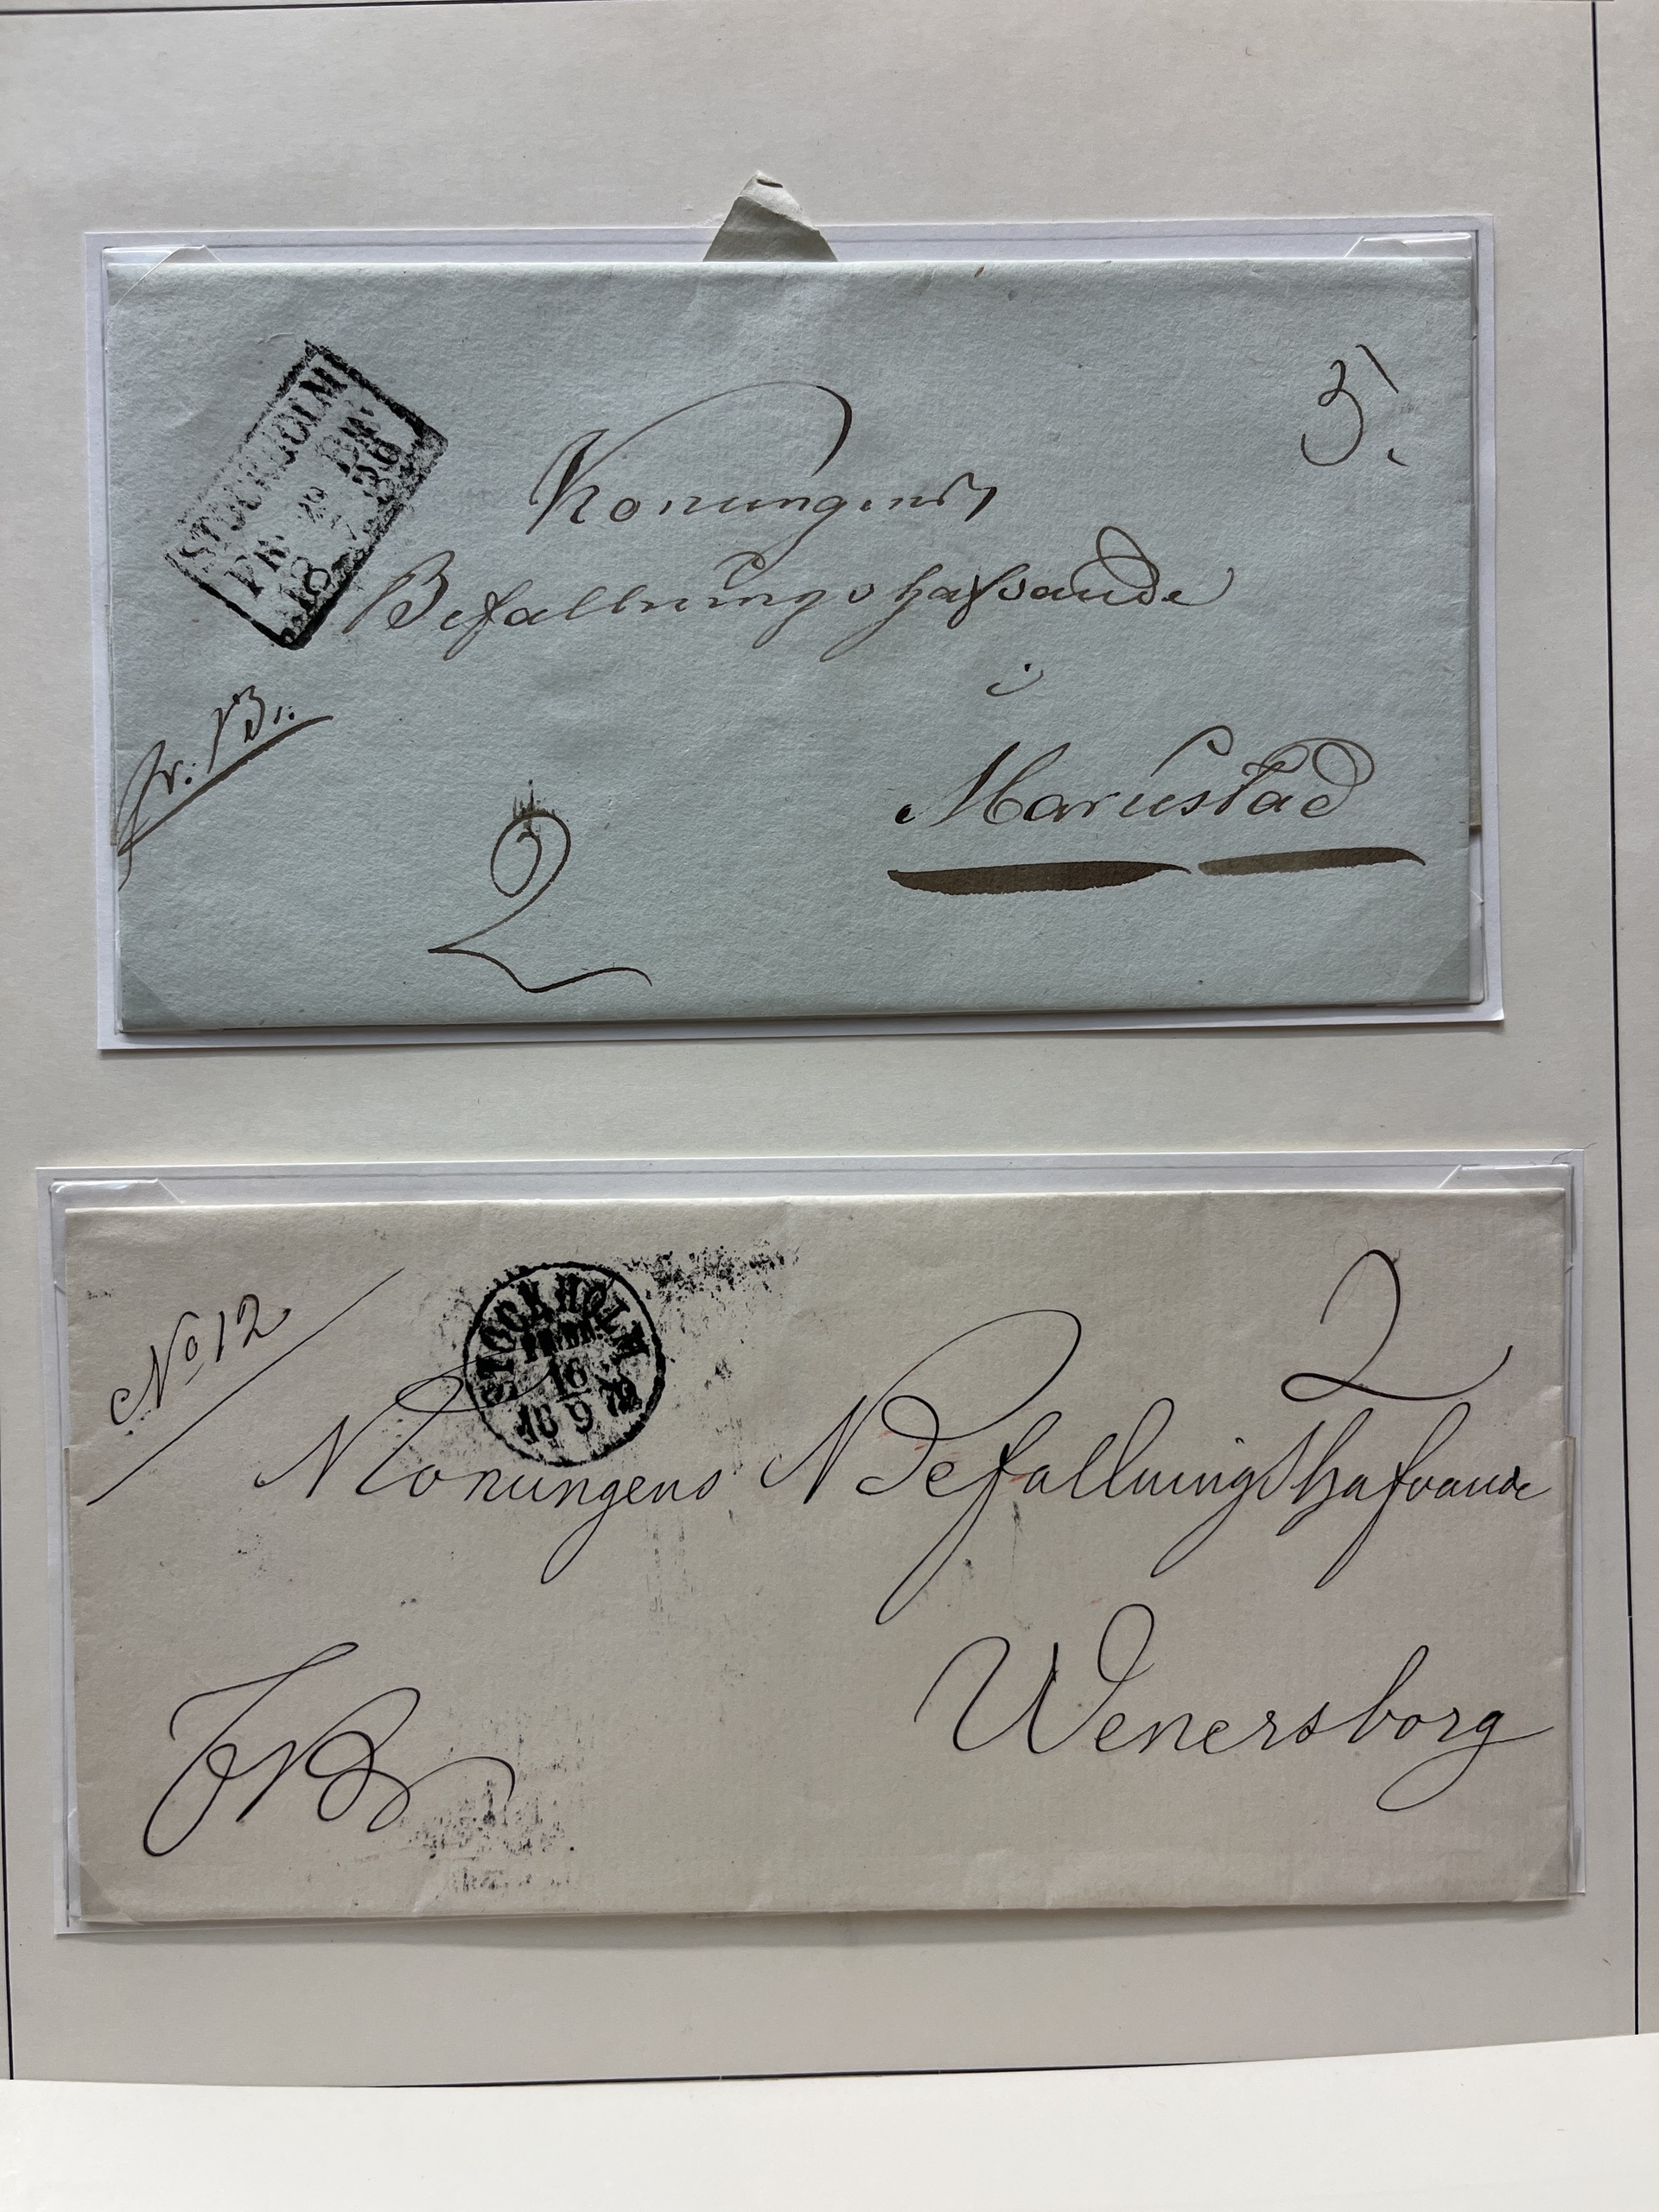 STOCKHOLM
18 36
3
Konungens
Befallningshafvande
i
Mariestad
fr. B.
2
No 12
STOCKHOLM
16
18 9 72
2
Konungens Befallningshafvande
Wenersborg